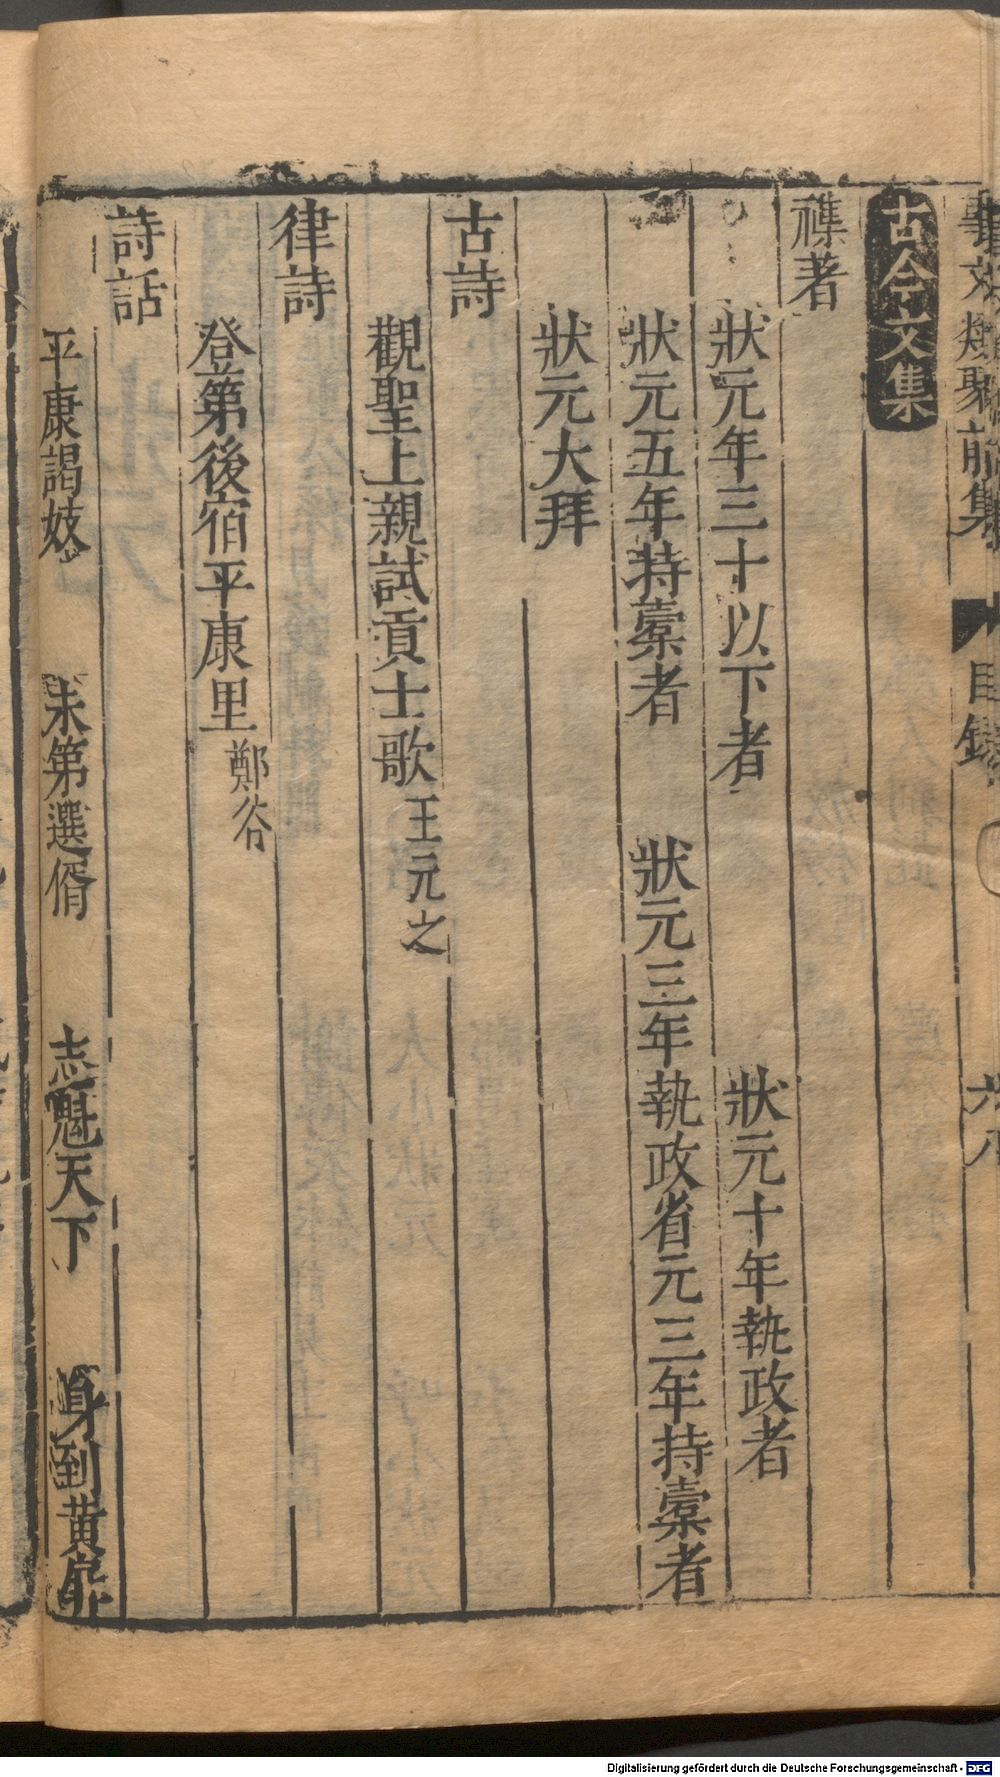 事文類聚前集 目録 六八
古今文集
襍著
狀元年三十以下者 狀元十年執政者
狀元五年持櫜者 狀元三年執政省元三年持櫜者
狀元大拜
古詩
觀聖上親試貢士歌 王元之
律詩
登第後宿平康里 鄭谷
詩話
平康謁妓 未第選壻 志魁天下 身到黃扉
Digitalisierung gefördert durch die Deutsche Forschungsgemeinschaft - DFG